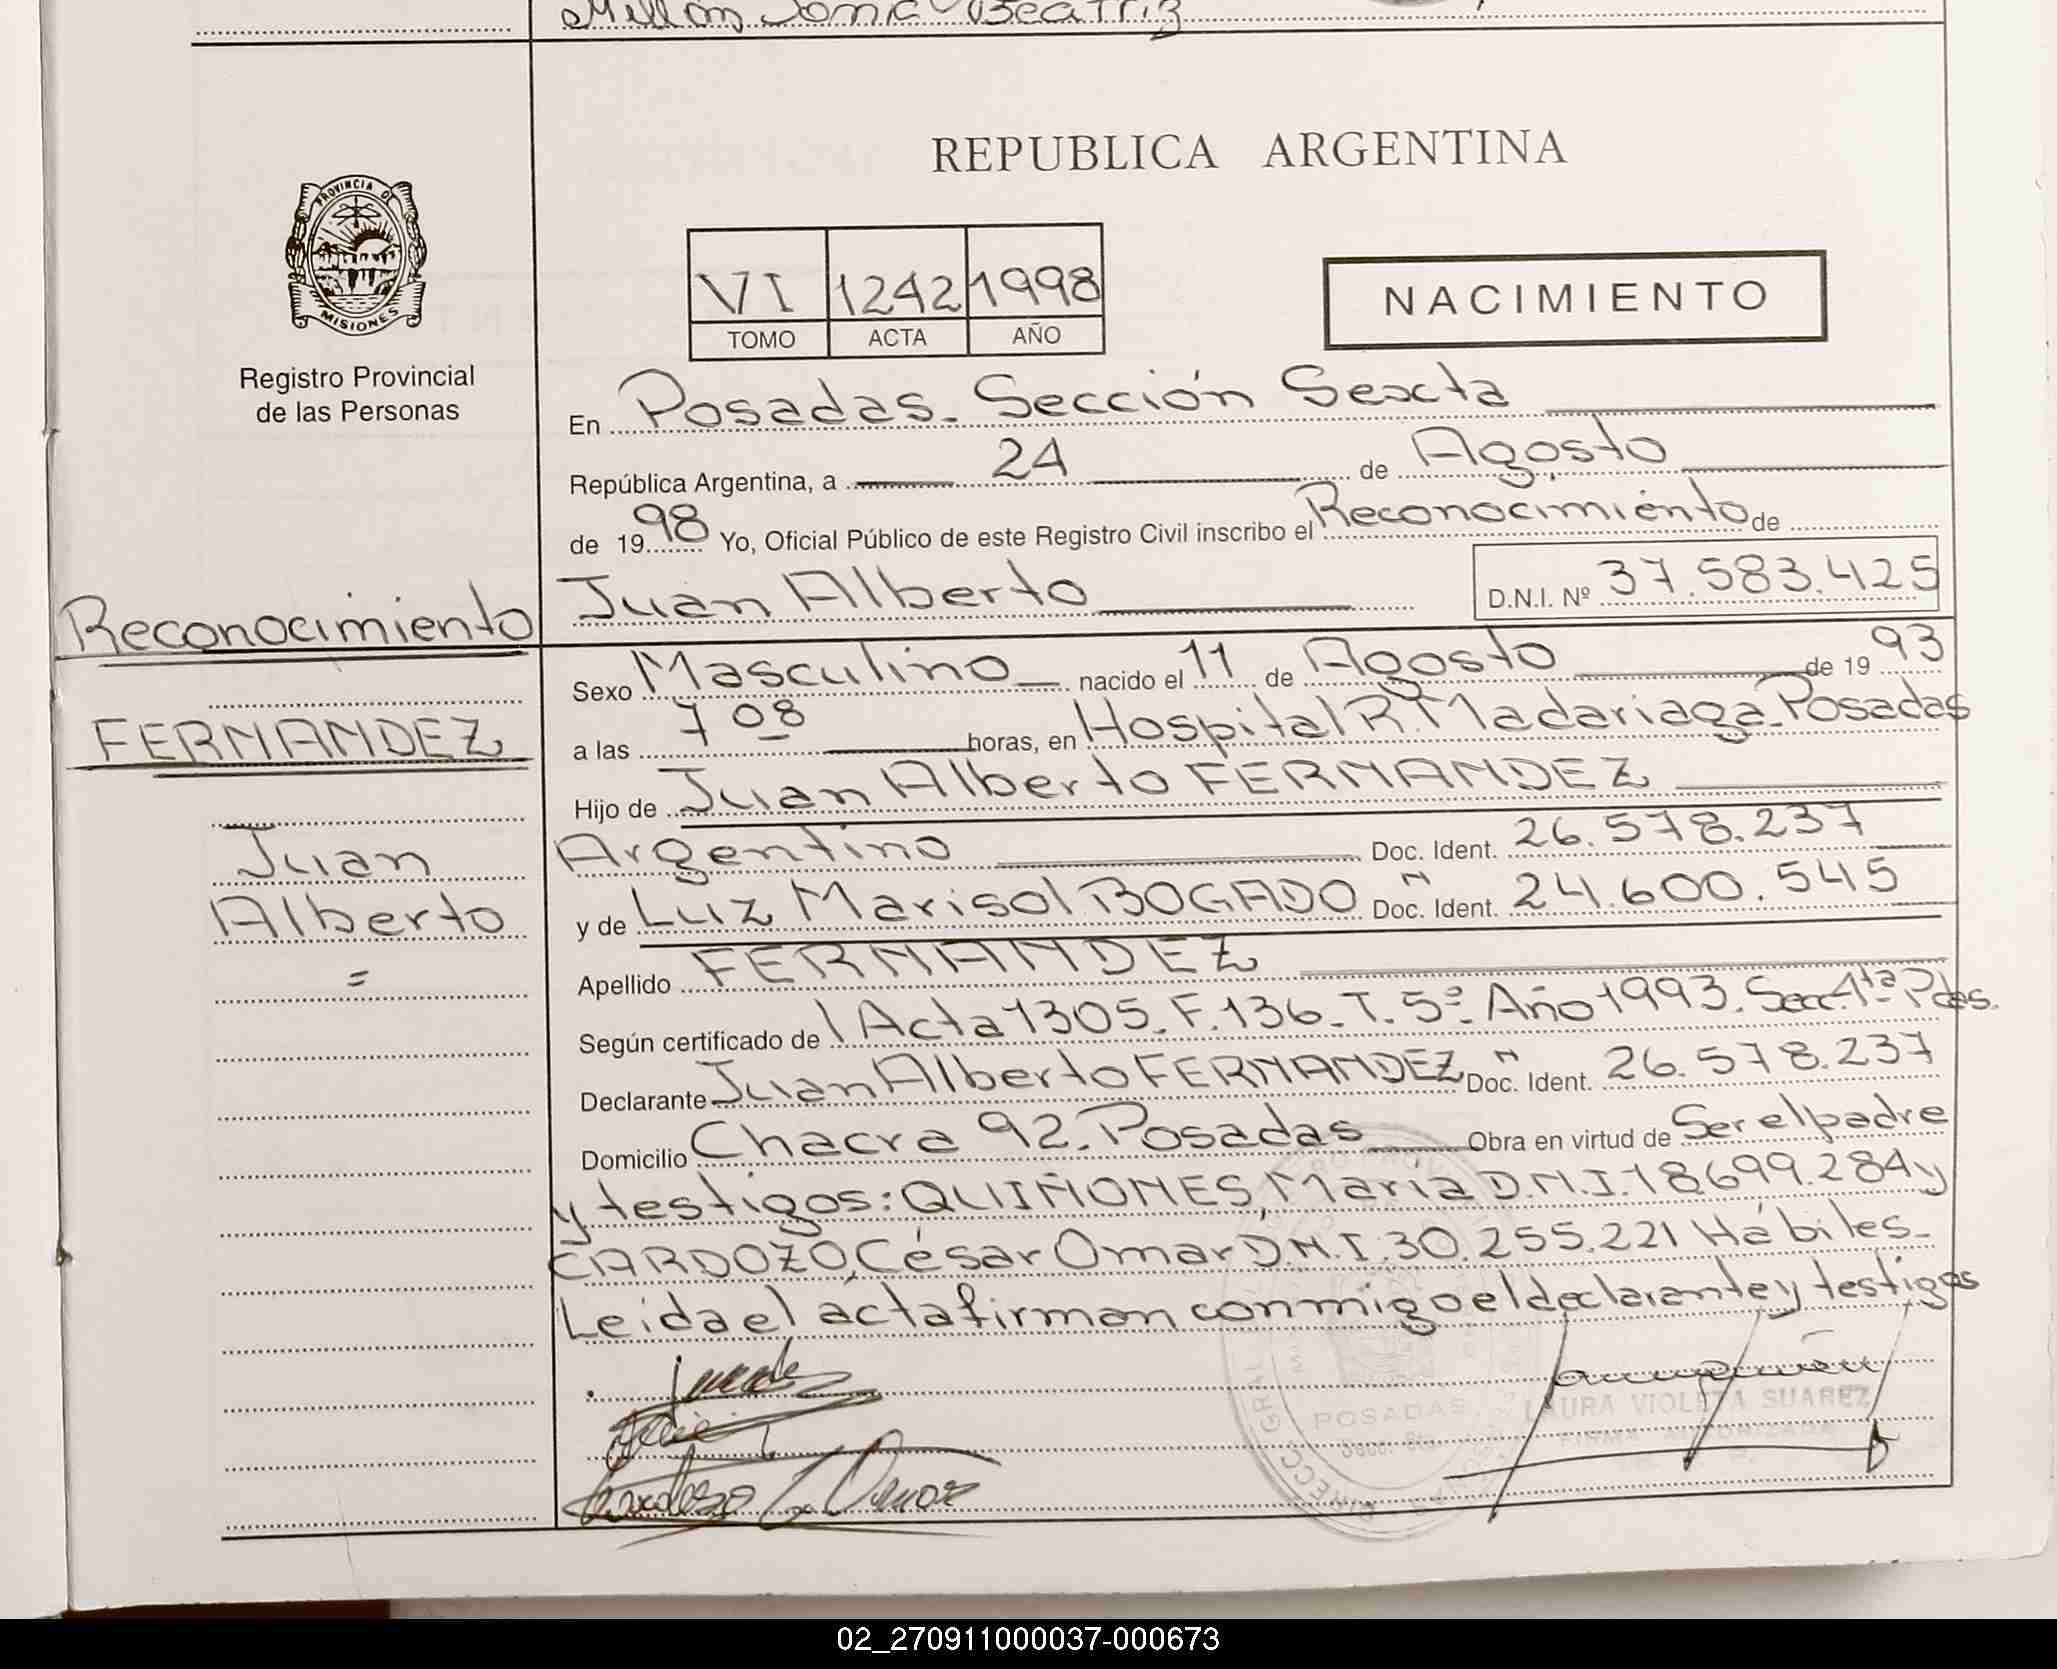 Beatriz
PROVINCIA DE
MISIONES
Registro Provincial
de las Personas
REPUBLICA ARGENTINA
VI 1242 1998
TOMO ACTA AÑO
NACIMIENTO
En Posadas. Sección Sexta
República Argentina, a 24 de Agosto
de 1998 Yo, Oficial Público de este Registro Civil inscribo el Reconocimiento de
Juan Alberto D.N.I. Nº 37.583.425
Reconocimiento
FERNANDEZ
Juan
Alberto
=
Sexo Masculino nacido el 11 de Agosto de 1993
a las 7 08 horas, en Hospital R. Madariaga. Posadas
Hijo de Juan Alberto FERNANDEZ
Argentino Doc. Ident. 26.578.237
y de Luz Marisol BOGADO N Doc. Ident. 24.600.545
Apellido FERNANDEZ
Según certificado de Acta 1305. F. 136. T. 5º Año 1993. Secc. 4ta Pdas.
Declarante Juan Alberto FERNANDEZ N Doc. Ident. 26.578.237
Domicilio Chacra 92. Posadas Obra en virtud de Ser el padre
y testigos: QUIÑONES, María D.N.I. 18.699.284 y
CARDOZO, César Omar D.N.I. 30.255.221 Hábiles.
Leída el acta firman conmigo el declarante y testigos
Cardozo C. Omar
POSADAS
Secc. 6ta
LAURA VIOLETA SUAREZ
FIRMA AUTORIZADA
02_270911000037-000673